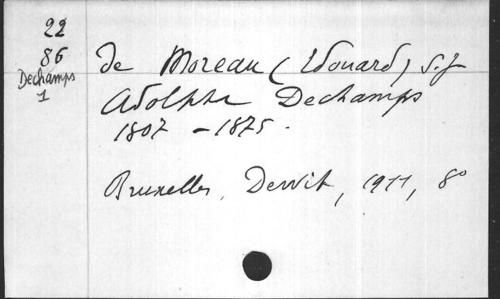 22
86
Dechamps
1
de Moreau (Edouard) S.J
Adolphe Dechamps
1807 - 1875.
Bruxelles, Dewit, 1911, 8°